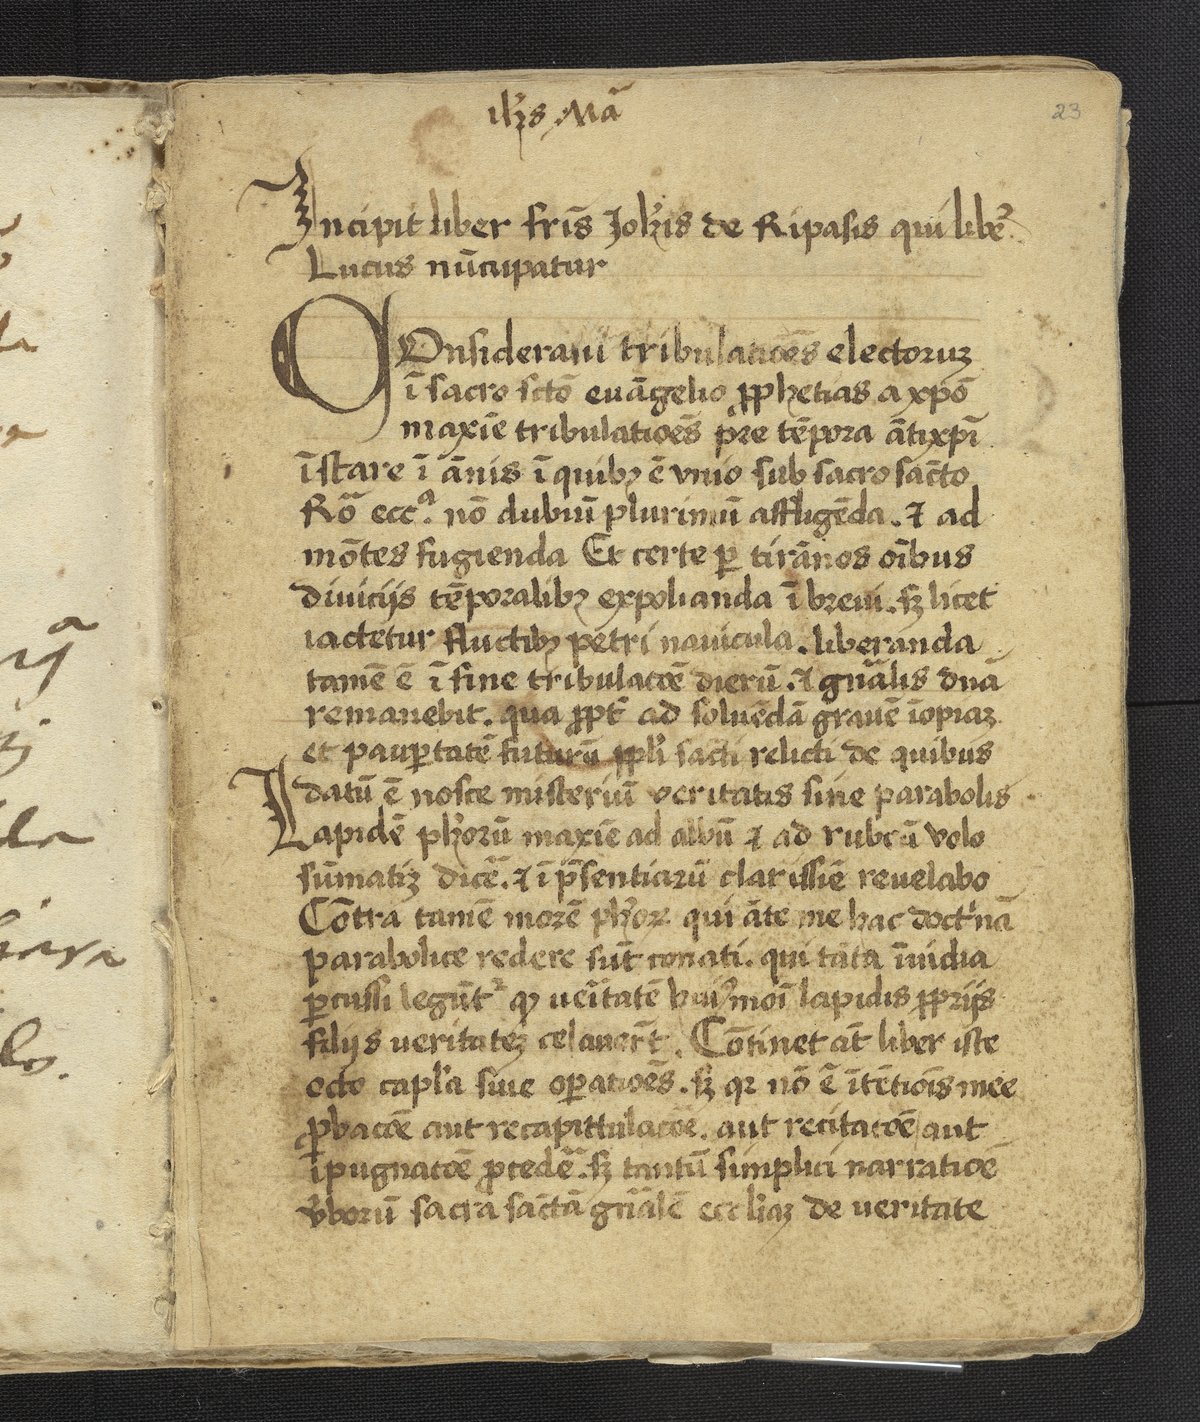 23
ih̃s Mã
Incipit liber fris̃ Joh̃is de Ripasis qui libeʳ
Lucus nũcupatur
COnsideraui tribulatiões electoruꝫ
ĩ sacro sctõ euãgelio ꝓphetias a xpõ
maxiẽ tribulatioẽs p̃re tẽpora ãtixpĩ
ĩstare ĩ ãnis ĩ quibꝫ ẽ vnio sub sacro sac̃to
Rõ eccᵃ. nõ dubiũ plurimũ affligẽda. ⁊ ad
mõtes fugienda Et certe ꝑ tirãnos oĩbus
diuicijs tẽporalibꝫ expolianda ĩ breui. sꝫ licet
iactetur fluctibꝫ petri nauicula. liberanda
tamẽ ẽ ĩ fine tribulacoẽ dierũ. ⁊ gñalis dñã
remanebit. qua ꝓpt̃ ad soluẽdã grauẽ ĩopiaꝫ
et pauꝑtatẽ futurũ ppl̃i sac̃ti relicti de quibus
datũ ẽ nosce misteriũ veritatis sine parabolis
Lapidẽ ph̃orũ maxiẽ ad albũ ⁊ ad rubeũ volo
sũmatiꝫ dicẽ. ⁊ ĩ p̃sentiarũ clarissiẽ reuelabo
Cõtra tamẽ morẽ ph̃oꝝ qui ãte me hac doctⁱnã
parabolice redere sũt conati. qui tãta ĩuidia
ꝑcussi legũtʳ ꝙ ueĩtatẽ huiꝰmoĩ lapidis ꝓprijs
filijs ueritateꝫ celauer̃t. Cõtinet ãt liber iste
octo capl̃a siue oꝑatioẽs. sꝫ qꝛ nõ ẽ ĩtẽtiõis mee
ꝓbacoẽ aut recapittulacoẽ. aut recitacoẽ aut
ĩpugnacoẽ ꝓcedẽ. sꝫ tantũ simplici narratioẽ
v̓borũ sacra sac̃tã gñalẽ eccl̃iaꝫ de veritate